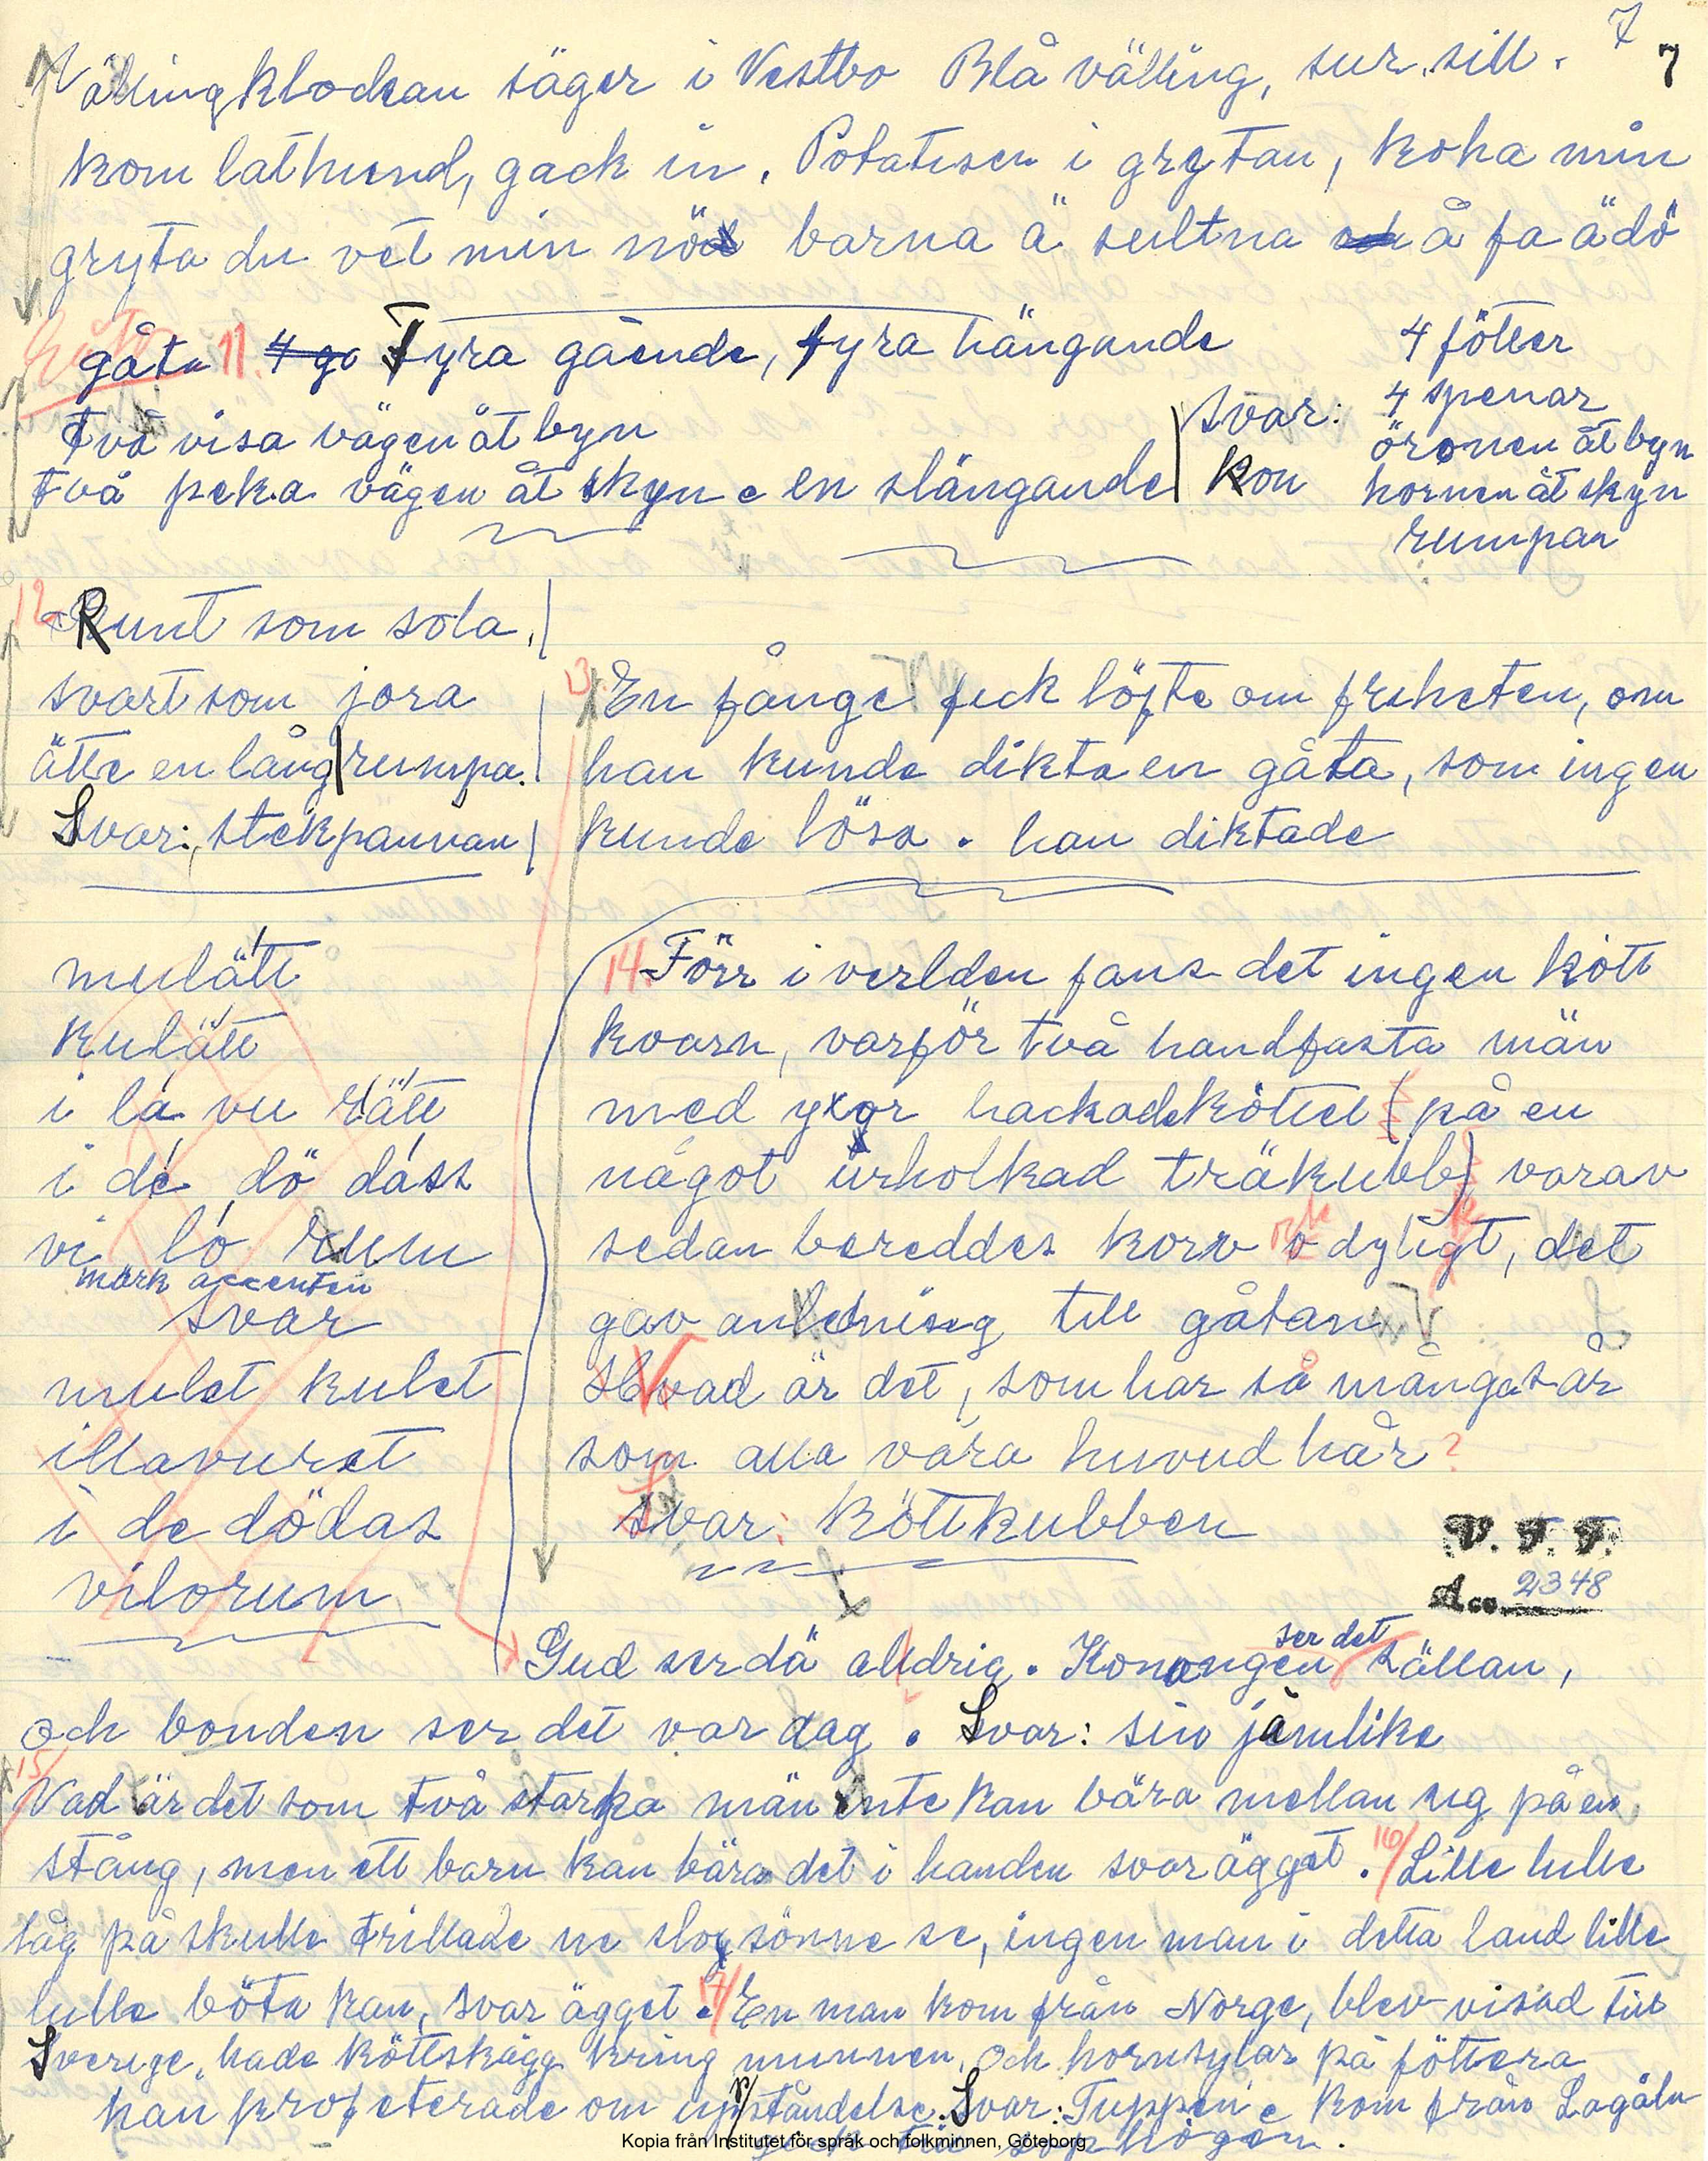 7
7
Vällingklockan säger i Vestbo Blå välling, sur sill.
kom lathund, gack in. Potatisen i grytan, koka min
gryta du vet min nöd barna ä sultna å få ä dö
gåta 11. Fyra gående, fyra hängande
två visa vägen åt byn
två peka vägen åt skyn e en slängande
Svar:
Kon
4 fötter
4 spenar
öronen åt byn
hornen åt skyn
rumpan
12
Runt som sola,
svart som jora
ätte en lång rumpa.
Svar: stekpannan
13
En fånge fick löfte om friheten, om
han kunde dikta en gåta, som ingen
kunde lösa. han diktade
mulätt
kulätt
i la vu rätt
i dé dö dáss
vi ló rum
märk accenten
svar
mulet kulet
illavuret
i de dödas
vilorum
14. Förr i verlden fans det ingen kött
kvarn, varför två handfasta män
med yxor hackade köttet (på en
något urholkad träkubb) varav
sedan bereddes korv o dyligt, det
gav anledning till gåtan
Hvad är det, som har så många sår
som alla våra huvudhår?
svar: köttkubben
V. F. F.
Acc. 2348
Gud ser dä aldrig. Konungen ser det sällan,
och bonden ser det var dag. Svar: sin jämlike
15/
Vad är det som två starka män inte kan bära mellan sig på en
stång, men ett barn kan bära det i handen svar ägget. 16/ Lille lulle
låg på skulle trillade ne slog sönne se, ingen man i detta land lille
lulle böta kan, svar ägget. 17/ En man kom från Norge, blev visad till
Sverige, hade köttskägg kring munnen, och hornsylar på föttera
han profeterade om uppståndelse. Svar: Tuppen e kom från Lagåln
Kopia från Institutet för språk och folkminnen, Göteborg
till sophögen.